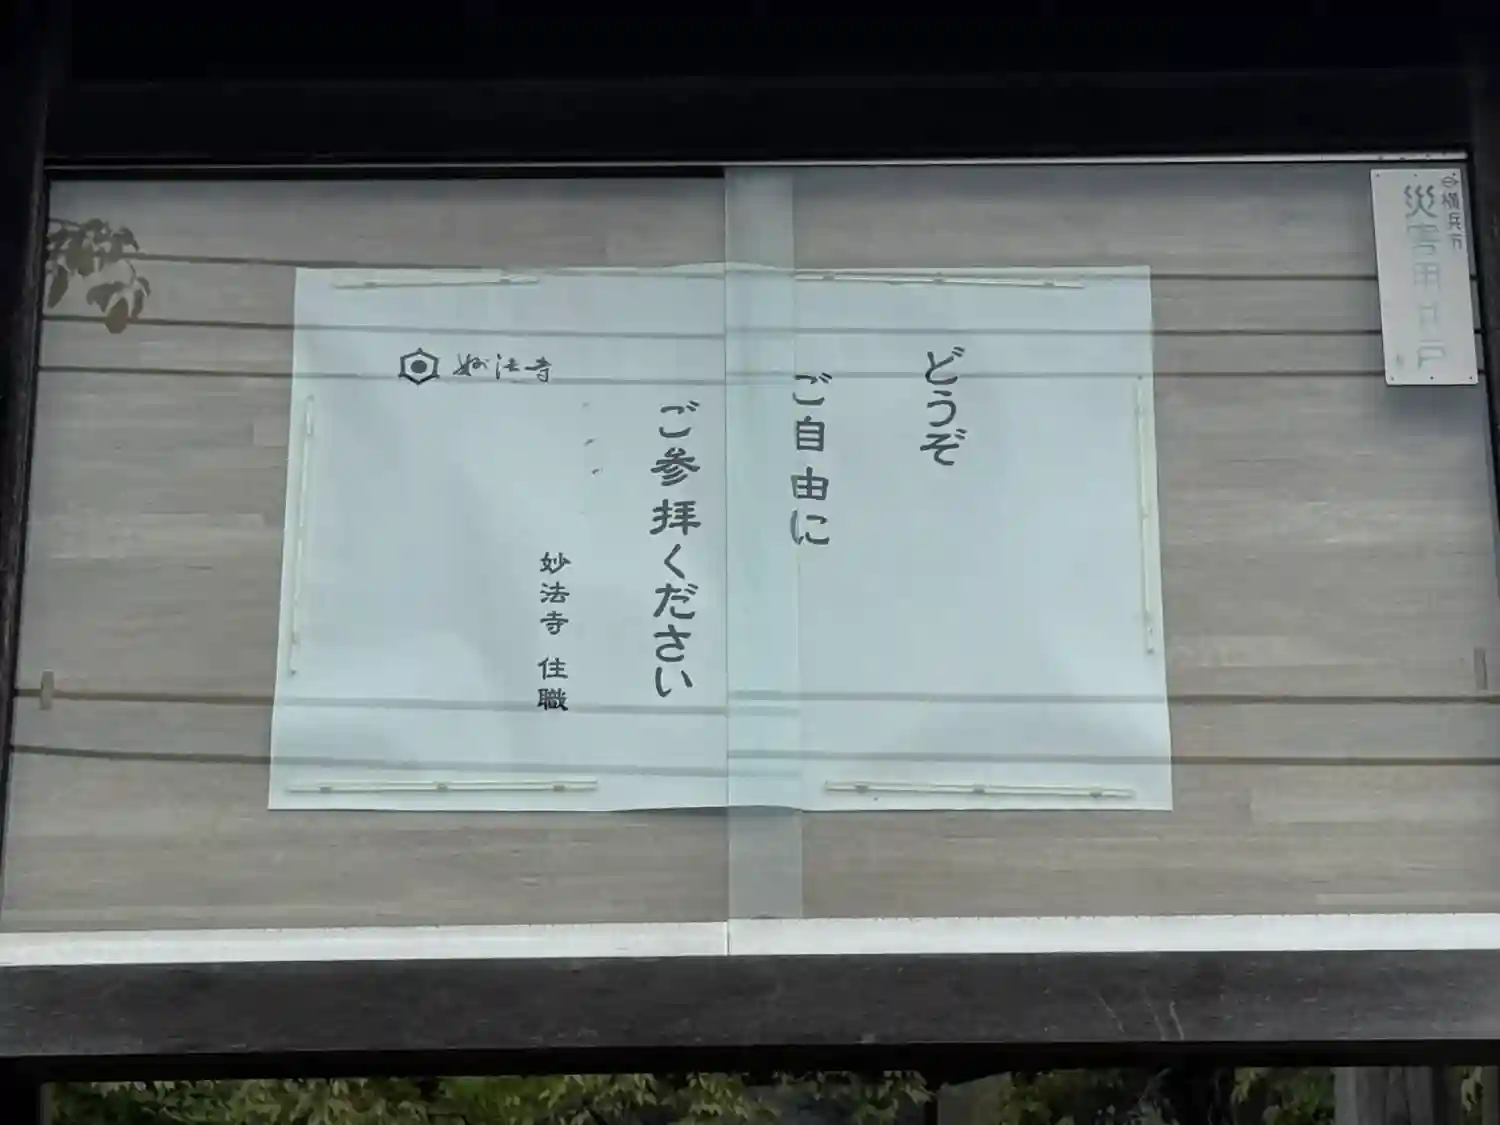 横浜市
災害用井戸
どうぞ
ご自由に
ご参拝ください
妙法寺 住職
妙法寺